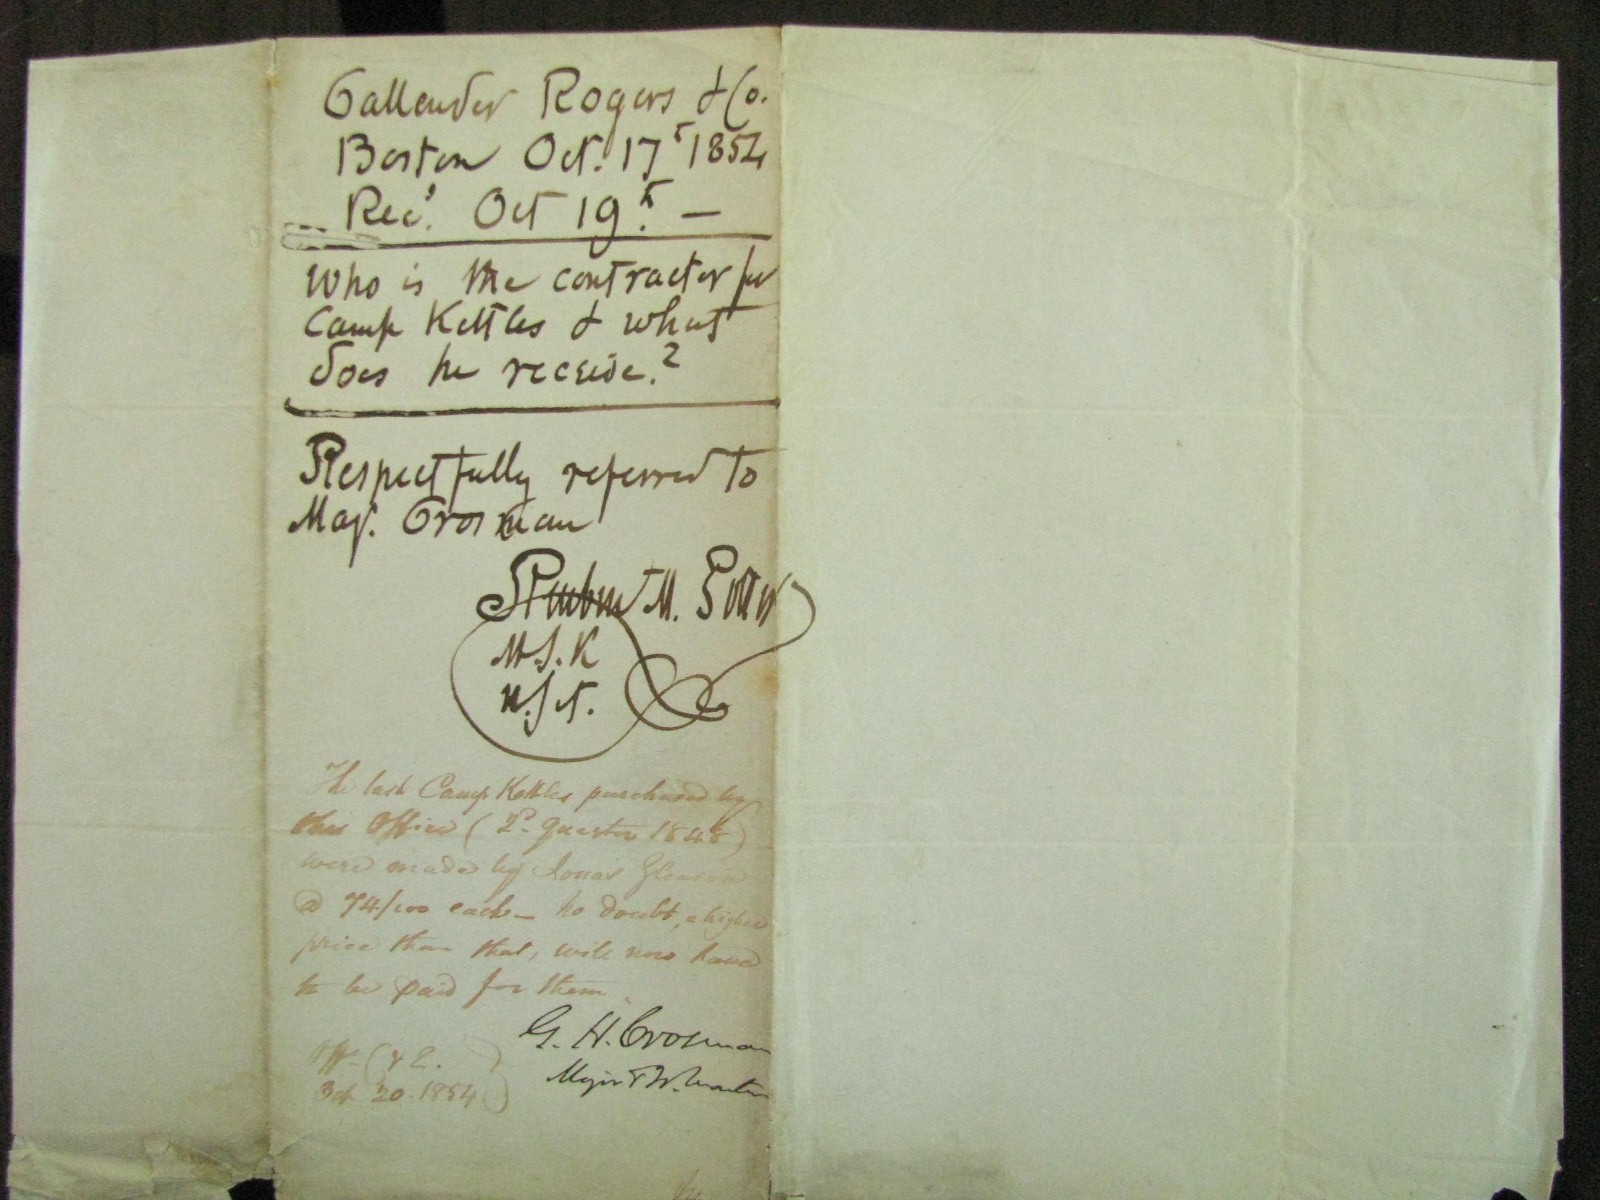 Callender Rogers & Co.
Boston Oct. 17th 1854
Rec'd. Oct 19th. —
Who is the contractor for
Camp Kettles & what
does he receive.?
Respectfully referred to
Maj. Crosman
Reuben M. Potter
M.S.K
U.S.A.
The last Camp Kettles purchased by
this Office (2d. Quarter 1848)
were made by Jonas Gleason
@ 74/100 each — no doubt, a higher
price than that, will now have
to be paid for them.
G. H. Crosman
Major &
Oct 20. 1854